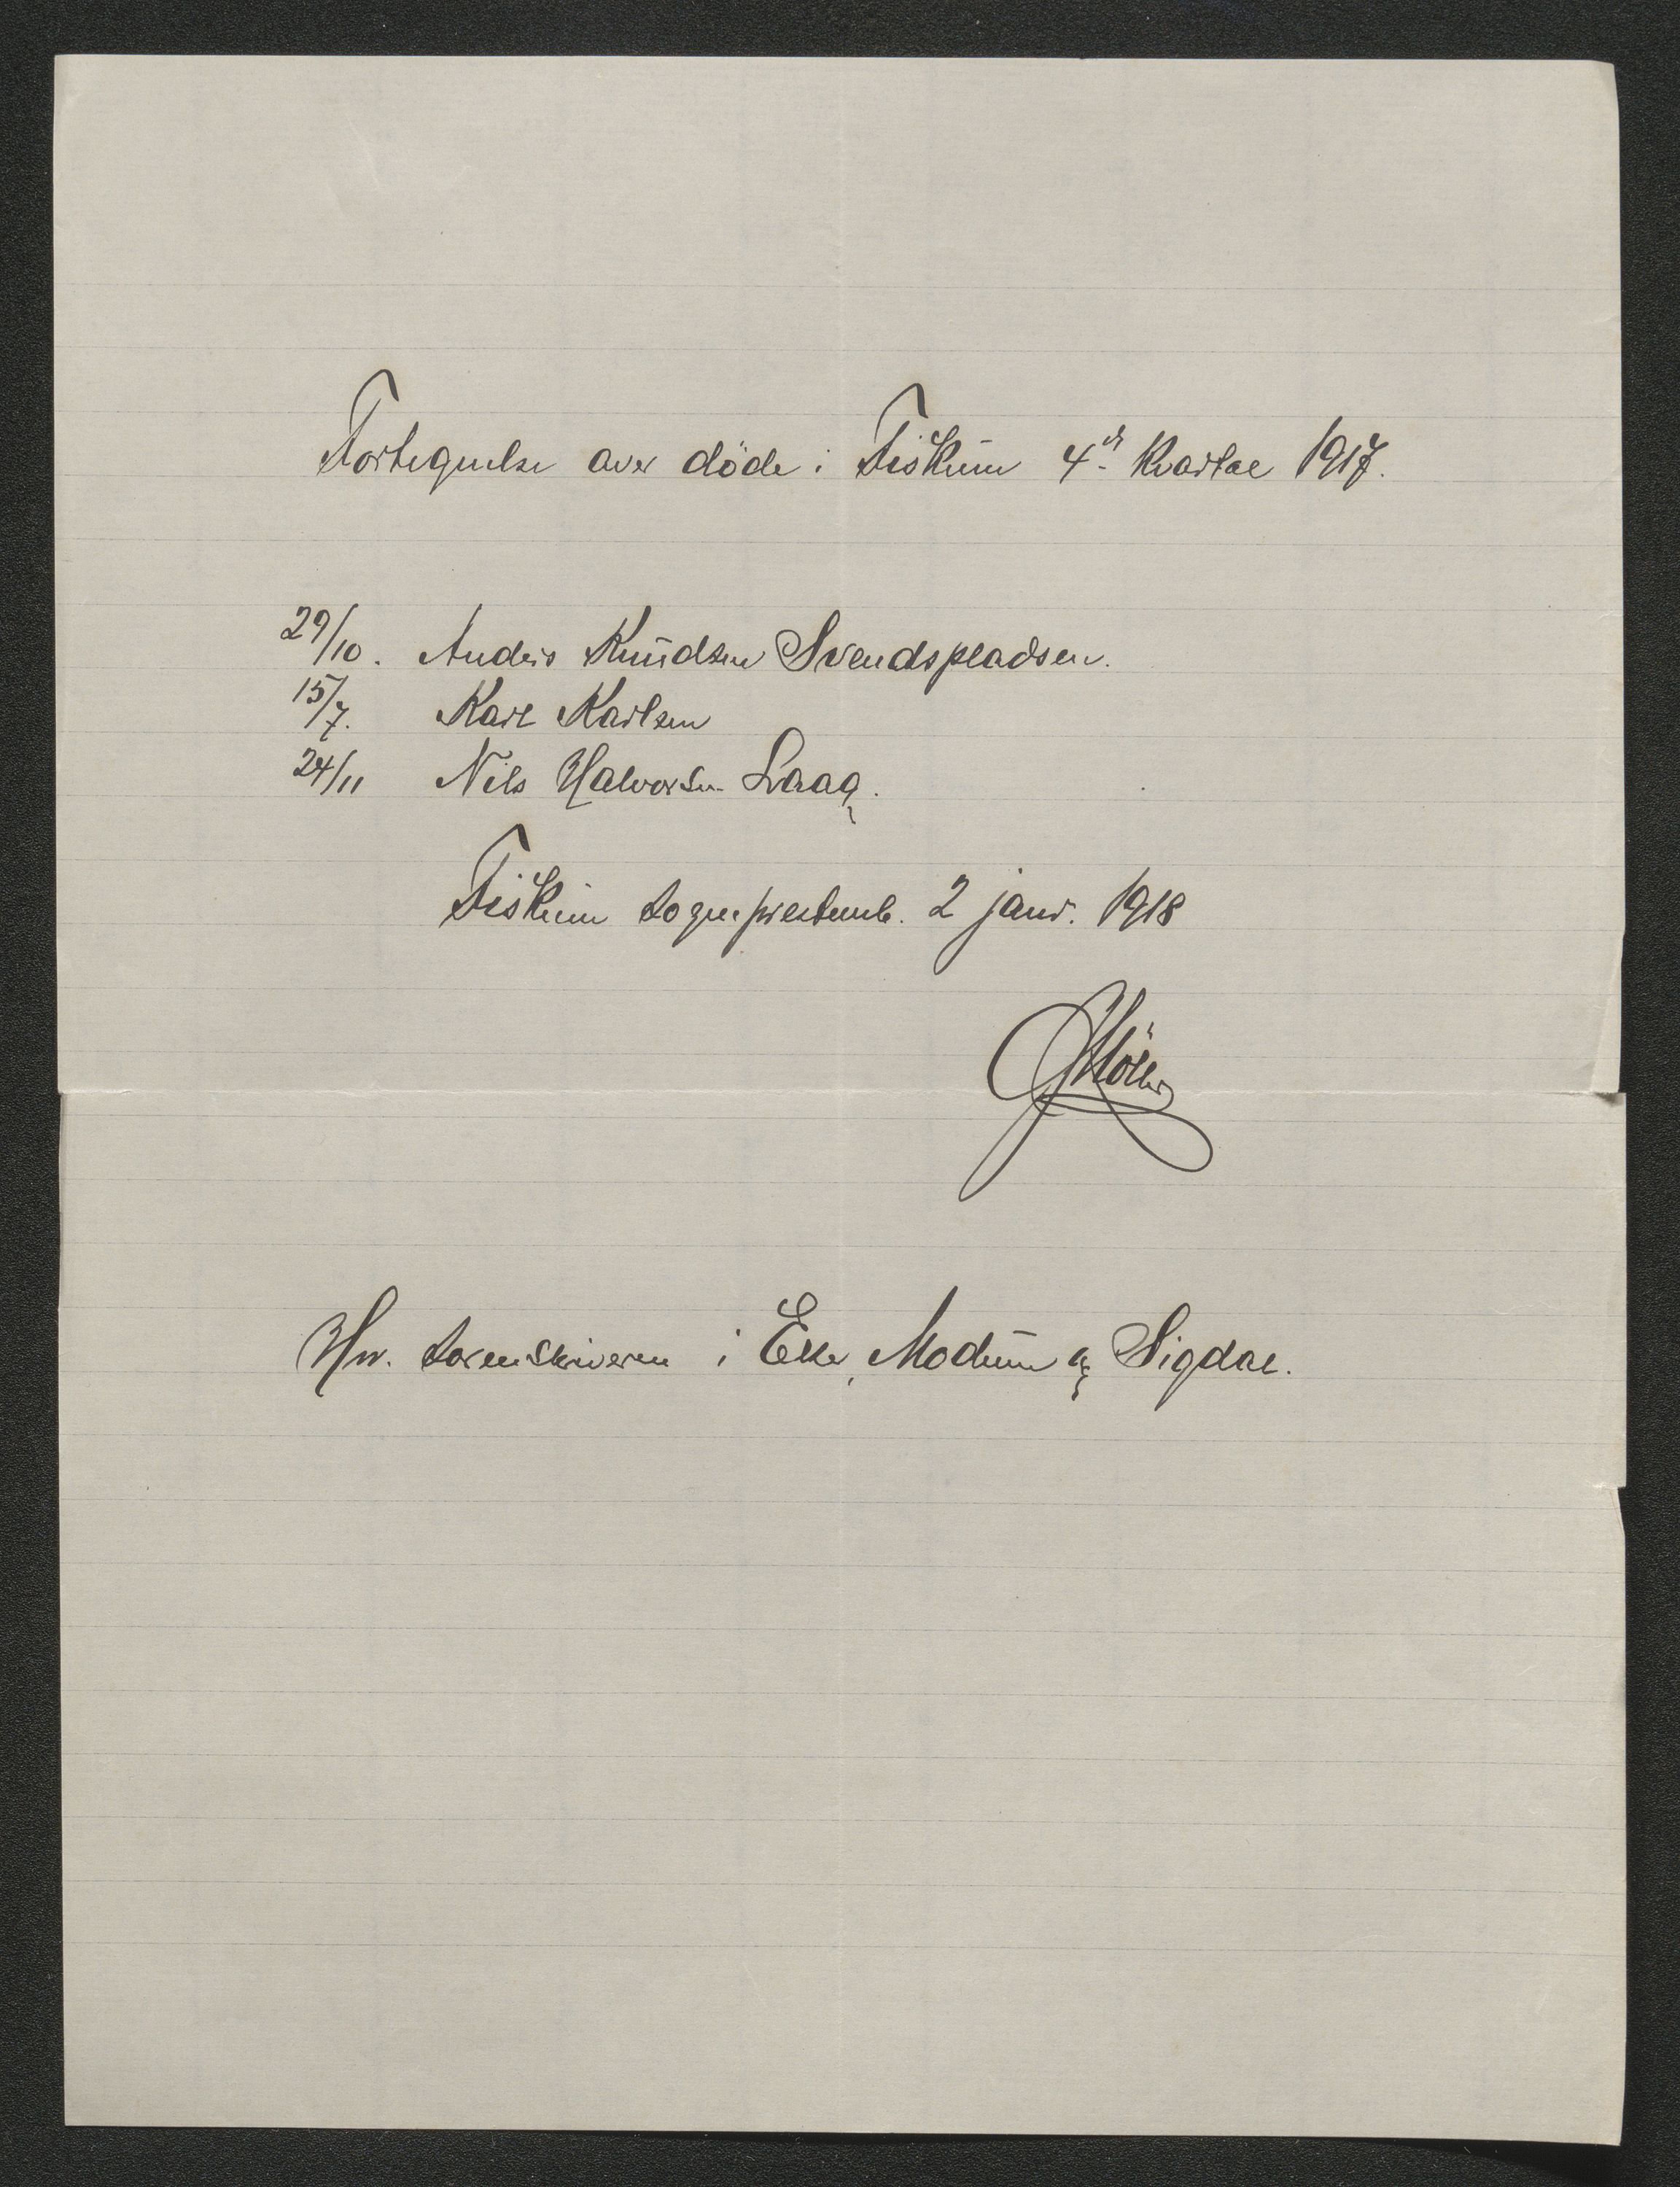 Fortegnelse over døde i Fiskum 4de Kvartal 1917.
29/10. Anders Knudsen Svendspladsen.
15/7. Karl Karlsen
24/11 Nils Halvorsen Laag.
Fiskum sogneprestemb. 2 janr. 1918
Møller
Hr. sorenskriveren i Eker, Modum og Sigdal.